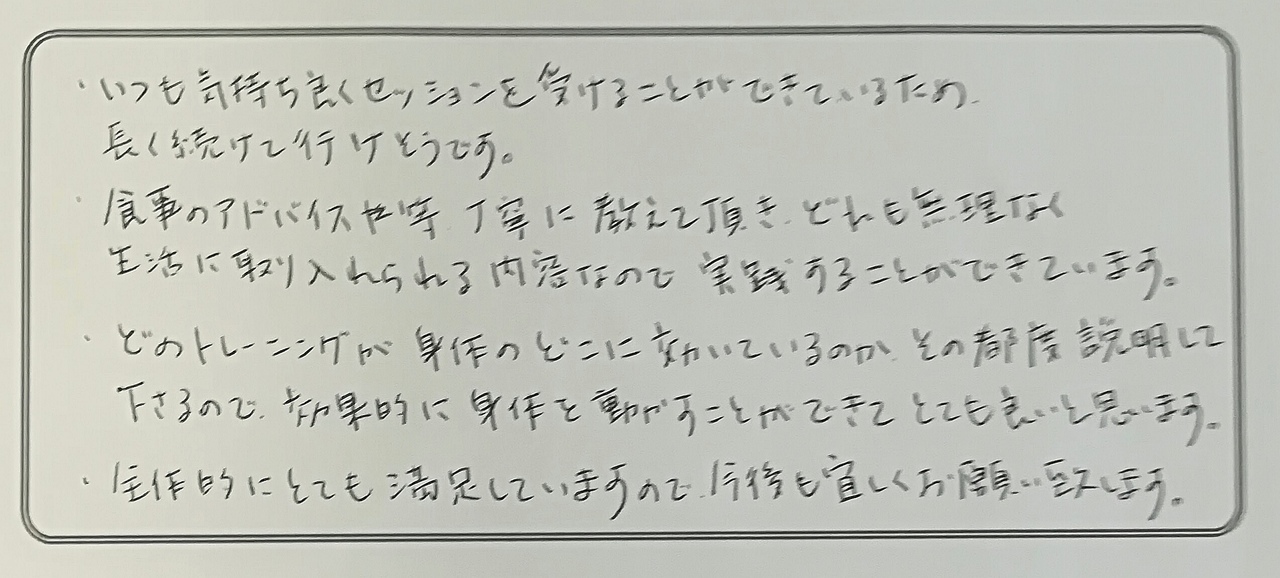 ・いつも気持ち良くセッションを受けることができているため、
長く続けて行けそうです。
・食事のアドバイスや等、丁寧に教えて頂き、どれも無理なく
生活に取り入れられる内容なので実践することができています。
・どのトレーニングが身体のどこに効いているのか、その都度説明して
下さるので、効果的に身体を動かすことができてとても良いと思います。
・全体的にとても満足していますので、今後も宜しくお願い致します。